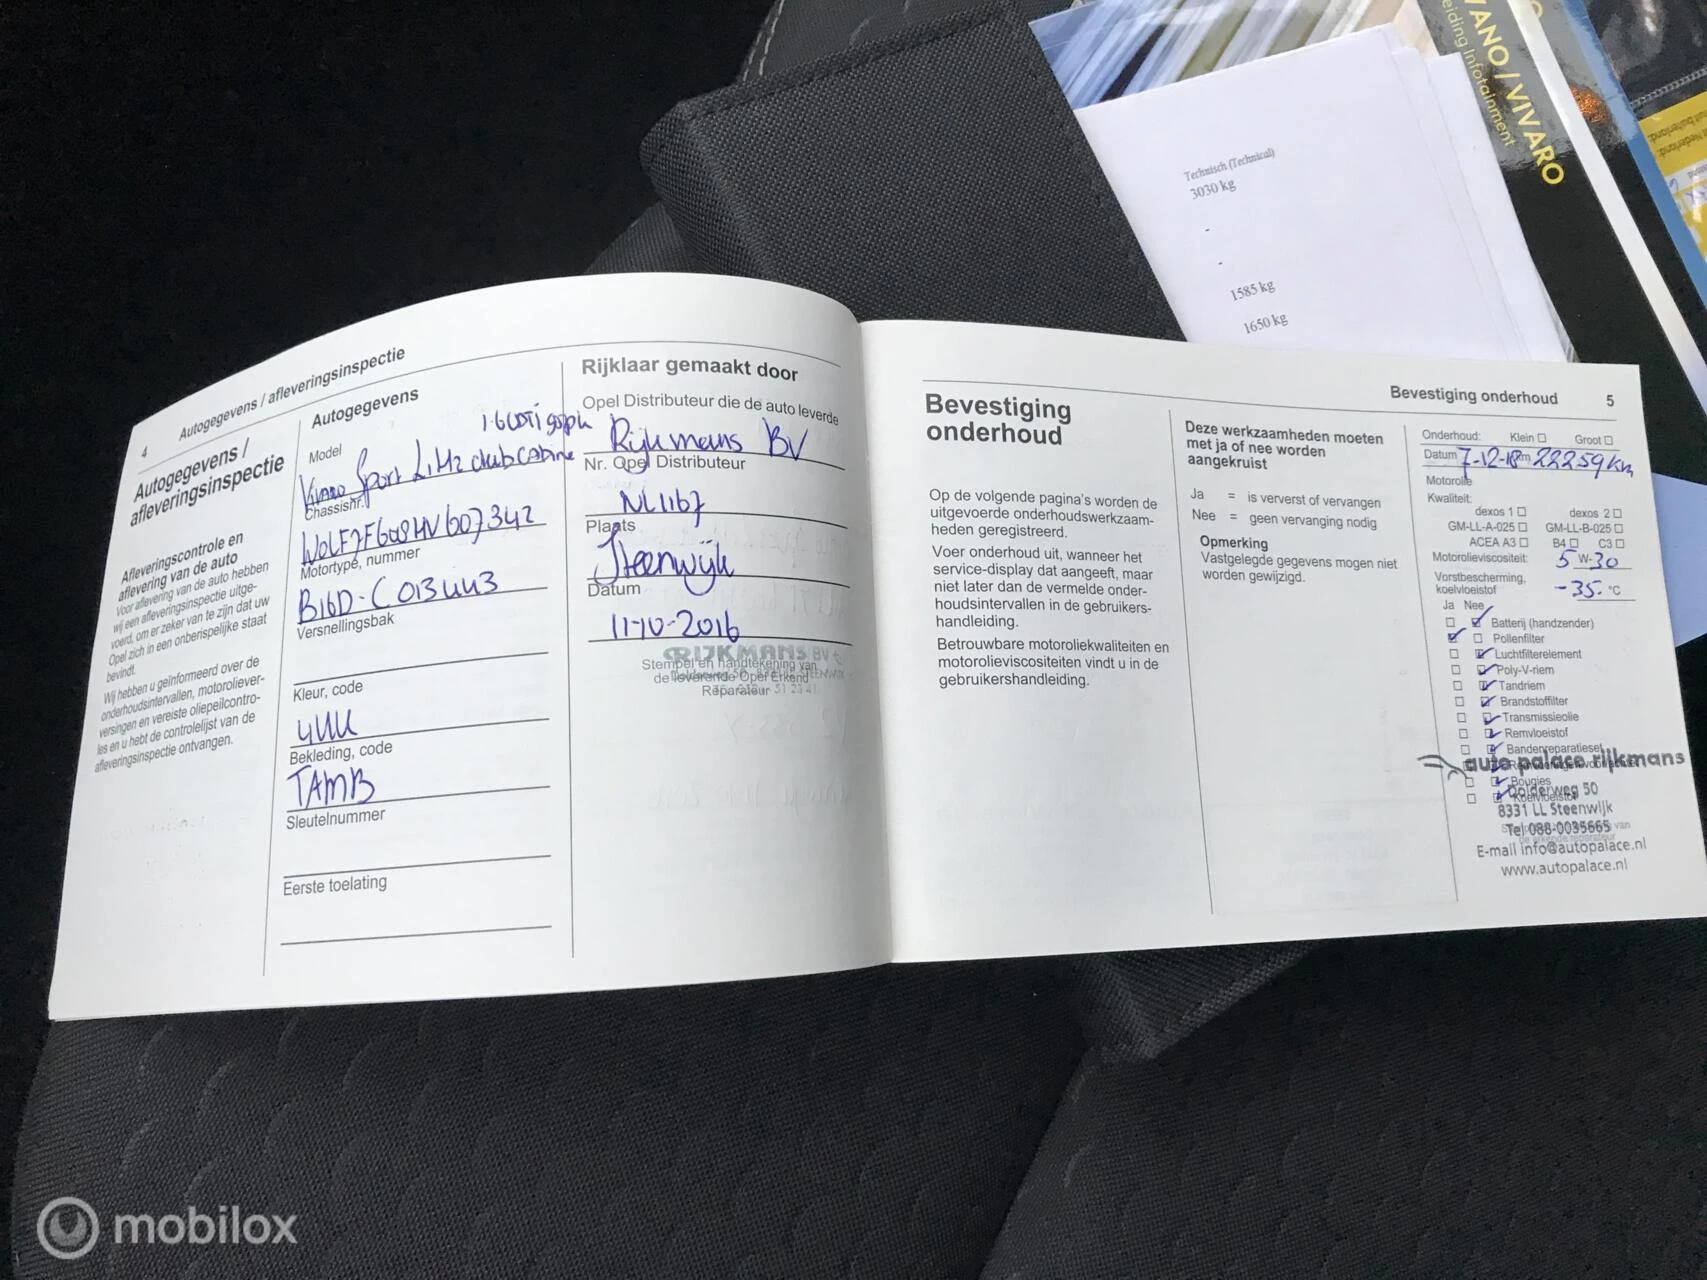 VANO / VIVARO
eiding Infotainment
Technisch (Technical)
3030 kg
-
-
1585 kg
1650 kg
4
Autogegevens / afleveringsinspectie
Autogegevens /
afleveringsinspectie
Afleveringscontrole en
aflevering van de auto
Voor aflevering van de auto hebben
wij een afleveringsinspectie uitge-
voerd, om er zeker van te zijn dat uw
Opel zich in een onberispelijke staat
bevindt.
Wij hebben u geïnformeerd over de
onderhoudsintervallen, motoroliever-
versingen en vereiste oliepeilcontro-
les en u hebt de controlelijst van de
afleveringsinspectie ontvangen.
Autogegevens
Model
Vivaro Sport L1H2 dubCabine
Chassisnr.
W0LF7F608HV607342
Motortype, nummer
B16D-C013443
Versnellingsbak
Kleur, code
Bekleding, code
TAMB
Sleutelnummer
Eerste toelating
Rijklaar gemaakt door
Opel Distributeur die de auto leverde
Rijkmans BV
Nr. Opel Distributeur
NL1167
Plaats
Steenwijk
Datum
11-10-2016
RIJKMANS BV
Stempel en handtekening van
de leverende Opel Erkend
Reparateur
Bevestiging onderhoud
5
Bevestiging
onderhoud
Op de volgende pagina's worden de
uitgevoerde onderhoudswerkzaam-
heden geregistreerd.
Voer onderhoud uit, wanneer het
service-display dat aangeeft, maar
niet later dan de vermelde onder-
houdsintervallen in de gebruikers-
handleiding.
Betrouwbare motoroliekwaliteiten en
motorolieviscositeiten vindt u in de
gebruikershandleiding.
Deze werkzaamheden moeten
met ja of nee worden
aangekruist
Ja = is ververst of vervangen
Nee = geen vervanging nodig
Opmerking
Vastgelegde gegevens mogen niet
worden gewijzigd.
Onderhoud: Klein Groot
Datum 7-12-18 km 22259 km
Motorolie
Kwaliteit:
dexos 1 dexos 2
GM-LL-A-025 GM-LL-B-025
ACEA A3 B4 C3
Motorolieviscositeit: 5 W-30
Vorstbescherming,
koelvloeistof -35. °C
Ja Nee
Batterij (handzender)
Pollenfilter
Luchtfilterelement
Poly-V-riem
Tandriem
Brandstoffilter
Transmissieolie
Remvloeistof
Bandenreparatieset
auto palace rijkmans
Bougies
Dolderweg 50
Koelvloeistof
8331 LL Steenwijk
Tel 088-0035665
E-mail info@autopalace.nl
www.autopalace.nl
mobilox